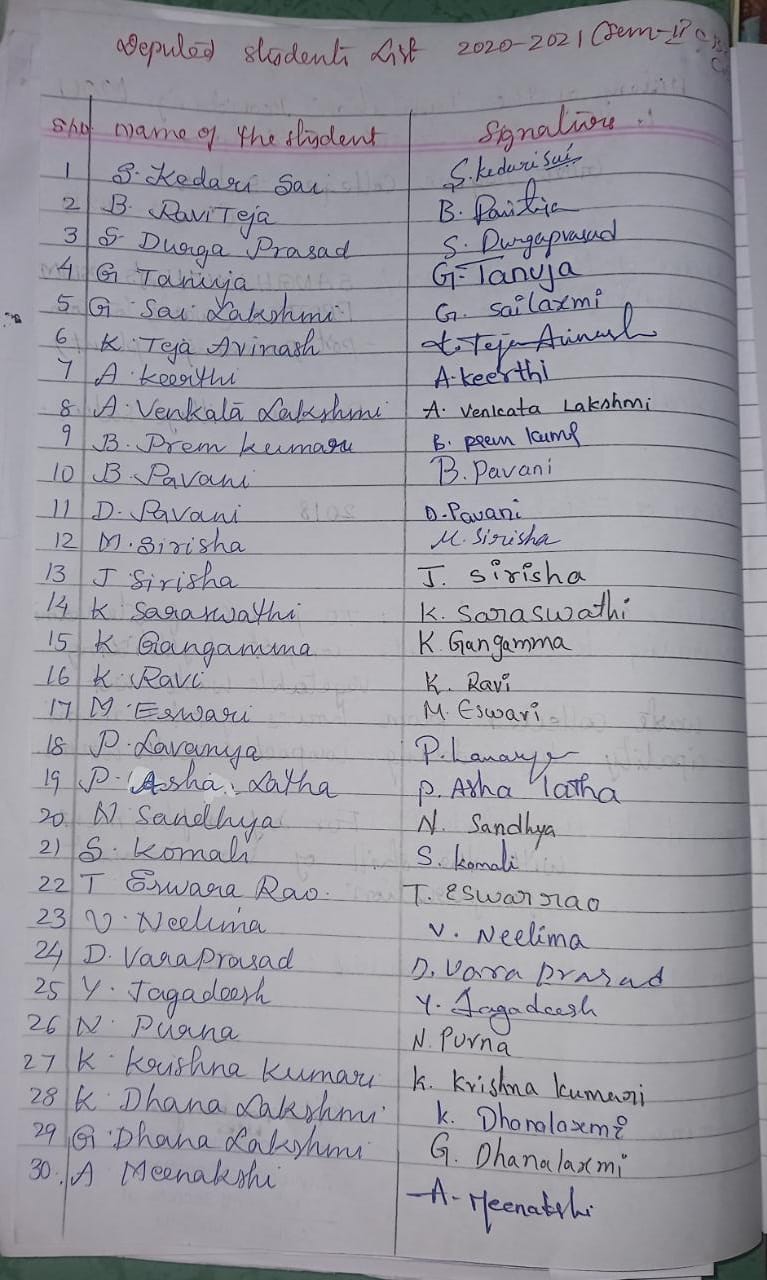 Deputed students List 2020-2021 (Sem-II
S.No Name of the student Signature
1 S. Kedari Sai S. kedari sai
2 B. RaviTeja B. Raviteja
3 S Durga Prasad S. Durgaprasad
4 G Tanuja G. Tanuja
5 G Sai Lakshmi G. sailaxmi
6 K. Teja Avinash K. Teja Avinash
7 A. keerthi A. keerthi
8 A. Venkata Lakshmi A. Venkata Lakshmi
9 B. Prem kumar B. prem kumr
10 B. Pavani B. Pavani
11 D. Pavani D. Pavani
12 M. Sirisha M. Sirisha
13 J Sirisha J. Sirisha
14 K Saraswathi K. Saraswathi
15 K Gangamma K. Gangamma
16 K. Ravi K. Ravi
17 M. Eswari M. Eswari
18 P. Lavanya P. Lavanya
19 P. Asha Latha P. Asha latha
20 N Sandhya N. Sandhya
21 S. Komali S. komali
22 T Eswara Rao. T. Eswarrao
23 V. Neelima V. Neelima
24 D. VaraPrasad D. Vara prasad
25 Y. Jagadeesh Y. Jagadeesh
26 N. Purna N. Purna
27 K. Krishna Kumari K. Krishna kumari
28 K Dhana Lakshmi K. Dhanalaxmi
29 G. Dhana Lakshmi G. Dhanalaxmi
30. A Meenakshi A. Meenakshi